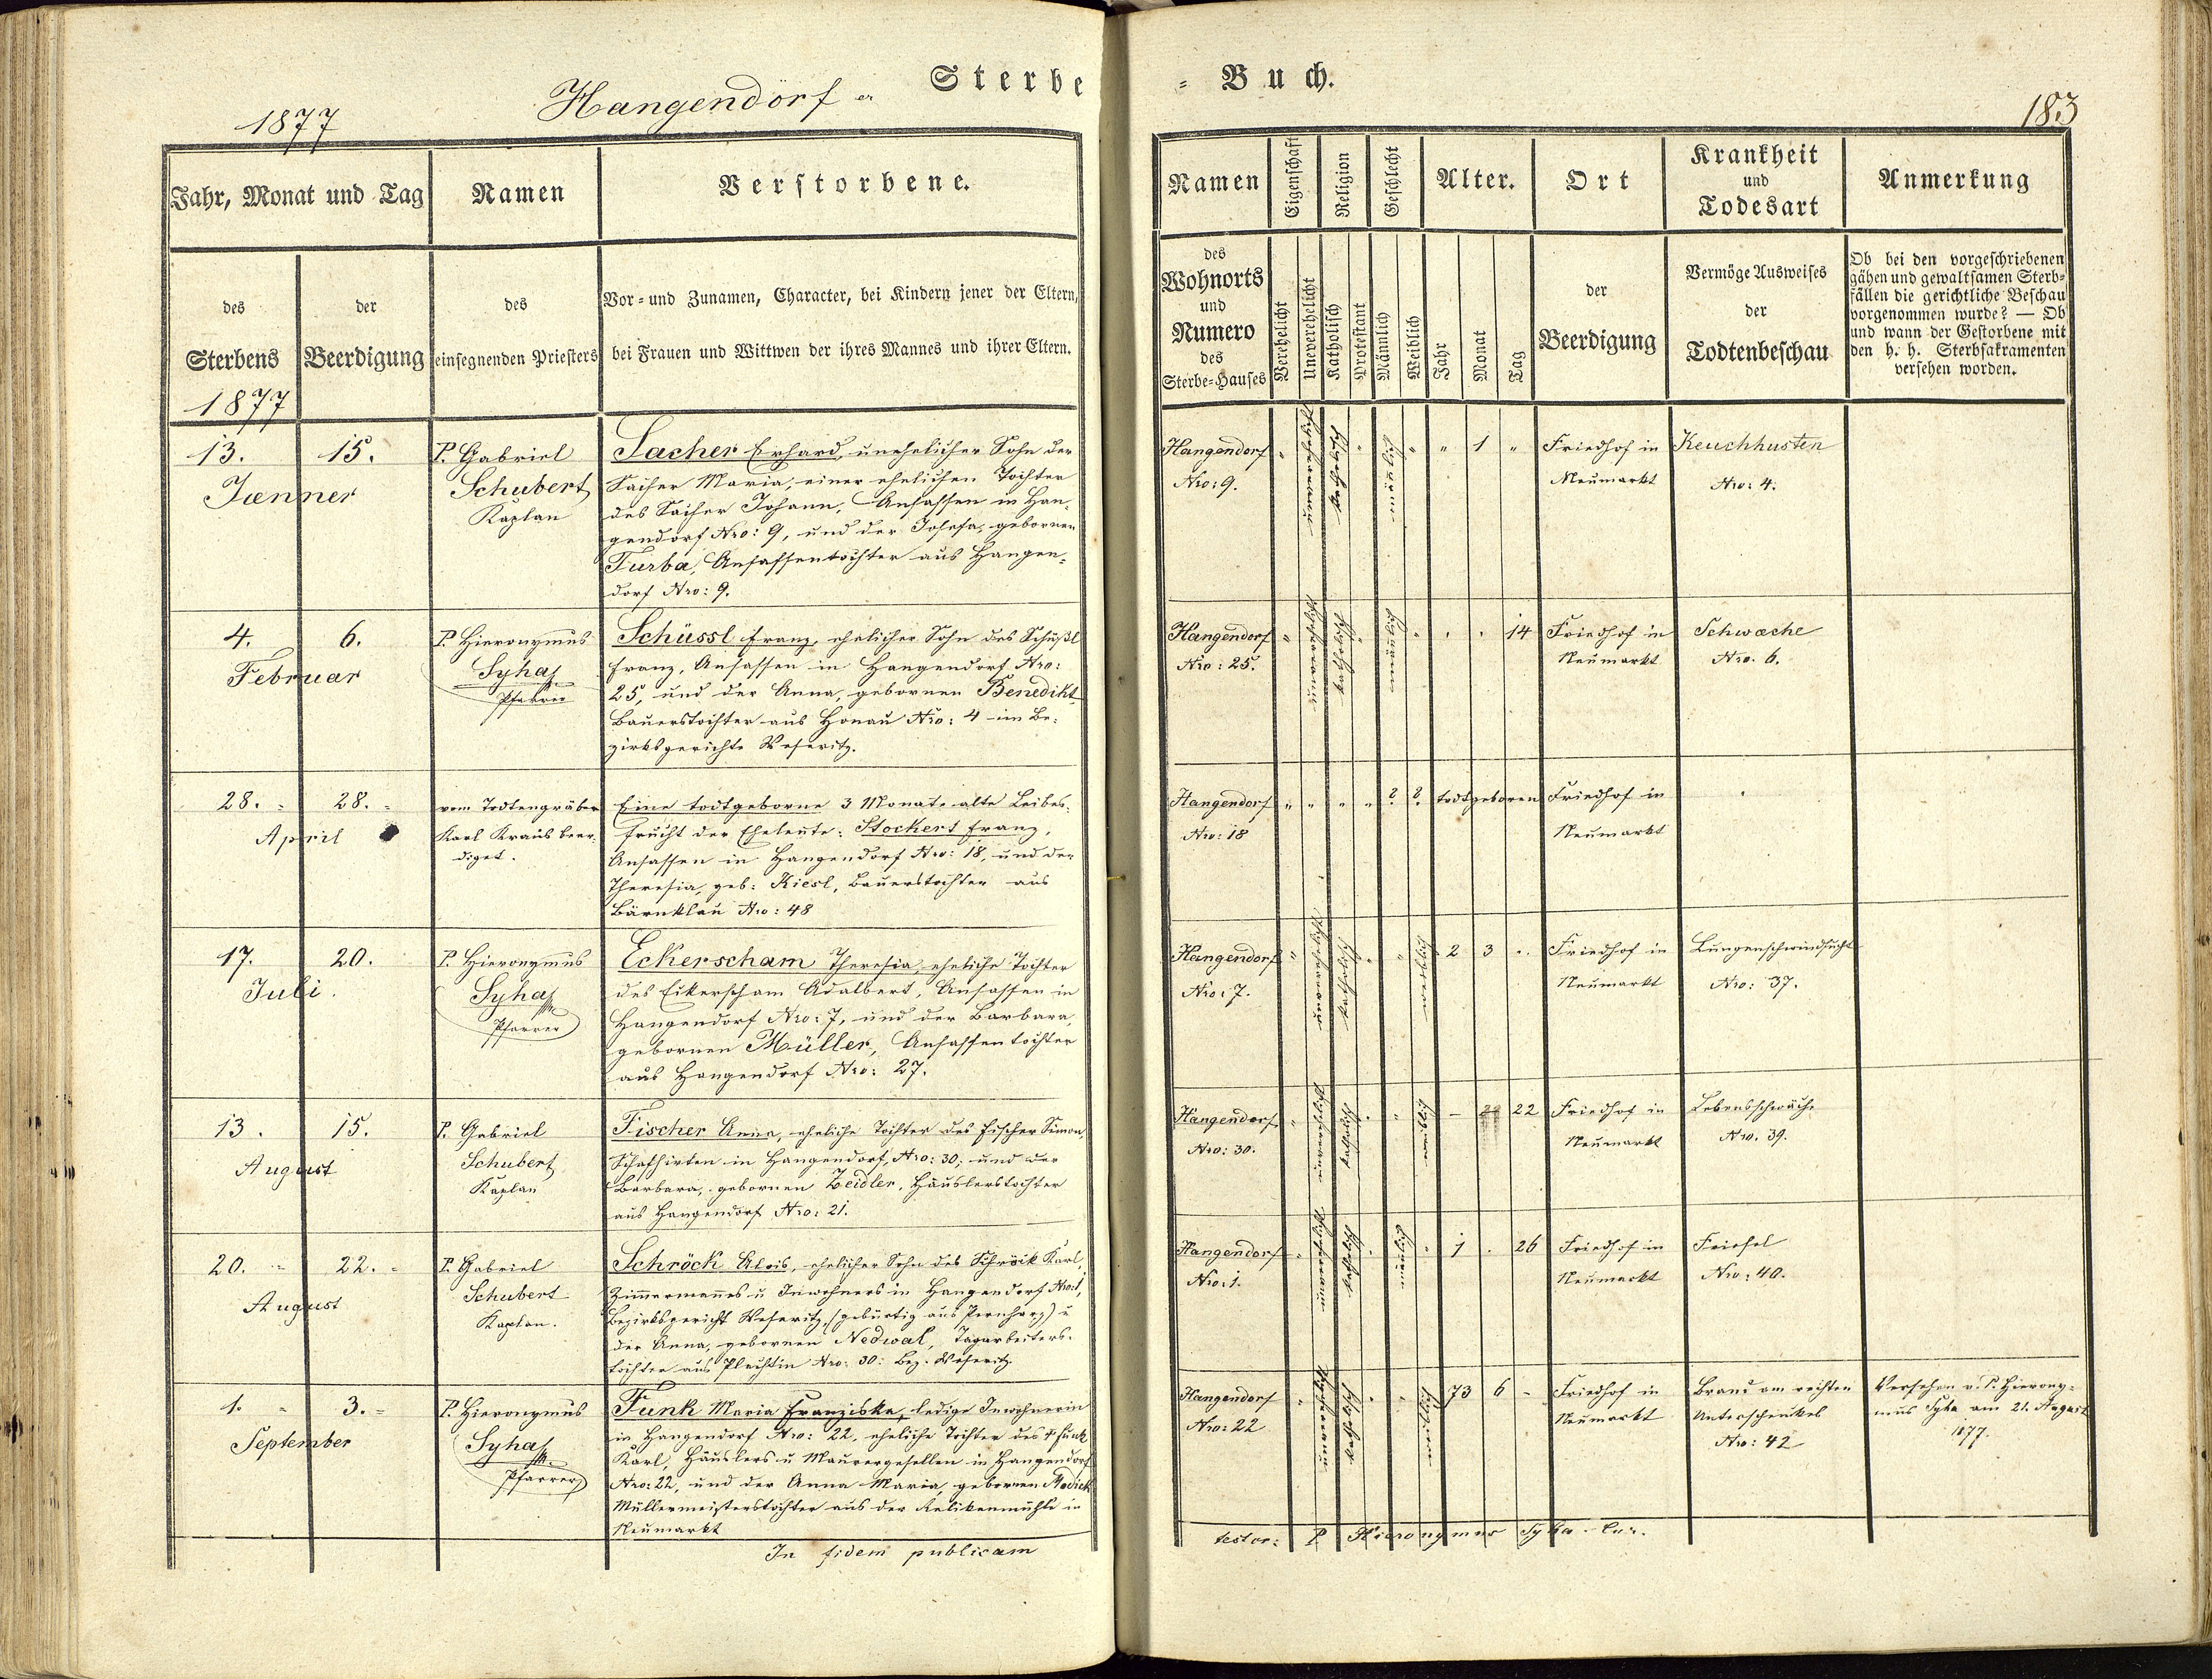 Hangendörf er Sterbe = Buch.
1877
183
Jahr, Monat und Tag
Namen
Verstorbene.
Namen
Eigenschaft
Religion
Geschlecht
Alter.
Ort
Krankheit
und
Todesart
Anmerkung
des
Sterbens
1877
der
Beerdigung
des
einsegnenden Priesters
Vor- und Zunamen, Character, bei Kindern jener der Eltern,
bei Frauen und Wittwen der ihres Mannes und ihrer Eltern.
des
Wohnorts
und
Numero
des
Sterbe-Hauses
Verehelicht
Unverehelicht
Katholisch
Protestant
Männlich
Weiblich
Jahr
Monat
Tag
der
Beerdigung
Vermöge Ausweises
der
Todtenbeschau
Ob bei den vorgeschriebenen
gähen und gewaltsamen Sterb=
fällen die gerichtliche Beschau
vorgenommen wurde? — Ob
und wann der Gestorbene mit
den h. h. Sterbsakramenten
versehen worden.
13. 15.
Jænner
P. Gabriel
Schubert
Kaplan
Sacher Erhard, unehelicher Sohn der
Sacher Maria, einer ehelichen Tochter
des Sacher Johann, Ansassen in Han-
gendorf Nro: 9, und der Josefa, gebornen
Turba, Ansassentochter aus Hangen-
dorf Nro: 9.
Hangendorf
Nro: 9.
" unverehelicht katholisch " männlich " " 1 "
Friedhof in
Neumarkt
Keuchhusten
Nro: 4.
4. 6.
Februar
P. Hieronymus
Syha
Pfarrer
Schüssl Franz, ehelicher Sohn des Schüßl
Franz, Ansassen in Hangendorf Nro:
25, und der Anna, gebornen Benedikt
Bauerstochter aus Honau Nro: 4 im Be-
zirksgerichte Weseritz.
Hangendorf
Nro: 25.
" unverehelicht katholisch " männlich " " " 14
Friedhof in
Neumarkt
Schwæche
Nro. 6.
28. 28.
April
vom Todtengräber
Karl Kraus beer-
diget.
Eine todtgeborne 3 Monate alte Leibes-
frucht der Eheleute: Stockert Franz,
Ansassen in Hangendorf Nro: 18, und der
Theresia, geb: Kiesl, Bauerstochter aus
Bärnklau Nro: 48
Hangendorf
Nro: 18
" " " " ? ? todtgeboren
Friedhof in
Neumarkt
17. 20.
Juli.
P. Hieronymus
Syha
Pfarrer
Eckerscham Theresia, eheliche Tochter
des Eckerscham Adalbert, Ansassen in
Hangendorf Nro: 7, und der Barbara,
gebornen Müller, Ansassentochter
aus Hangendorf Nro: 27.
Hangendorf
Nro: 7.
" unverehelicht katholisch " " weiblich 2 3 "
Friedhof in
Neumarkt
Lungenschwindsucht
Nro: 37.
13. 15.
August
P. Gabriel
Schubert
Kaplan
Fischer Anna, eheliche Tochter des Fischer Simon,
Schafhirten in Hangendorf, Nro: 30; und der
Barbara, gebornen Zeidler, Häuslerstochter
aus Hangendorf Nro: 21.
Hangendorf
Nro: 30.
" unverehelicht katholisch " " weiblich - 22
Friedhof in
Neumarkt
Lebensschwäche
Nro. 39.
20. 22.
August
P. Gabriel
Schubert
Kaplan.
Schröck Alois, ehelicher Sohn des Schröck Karl,
Zimmermannes u Inwohners in Hangendorf Nro: 1,
Bezirksgericht Weseritz, (gebürtig aus Pernharz) u
der Anna, gebornen Nedwal, Tagarbeiters-
tochter aus Plachtin Nro: 30: Bez. Weseritz.
Hangendorf
Nro: 1.
" unverehelicht katholisch " männlich " 1 . 26
Friedhof in
Neumarkt
Friesel
Nro: 40.
1. 3.
September
P. Hieronymus
Syha
Pfarrer
Funk Maria Franziska, ledige Inwohnerin
in Hangendorf Nro: 22, eheliche Tochter des † Funk
Karl, Häuslers u Maurergesellen in Hangendorf
Nro: 22, und der Anna Maria, gebornen
Müllermeisterstochter aus der in
Neumarkt
Hangendorf
Nro: 22
" unverehelicht katholisch " " weiblich 73 6 -
Friedhof in
Neumarkt
Brand am rechten
Unterschenkel
Nro: 42
Versehen v. P. Hierony-
mus Syha am 21. August
1877.
In fidem publicam
testor: P Hieronymus Syha Cur.